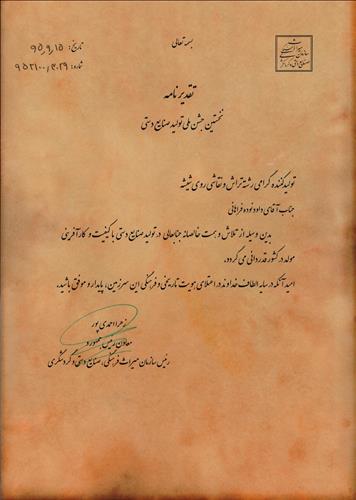 بسمه تعالی
تاریخ: ۹۵,۹,۱۵
شماره: ۹۵۲۱۰۰/۳۰۲۹
تقدیرنامه
نخستین جشن ملی تولید صنایع دستی
تولیدکننده گرامی رشته تراش و نقاشی روی شیشه
جناب آقای داود نوده فراهانی
بدین وسیله از تلاش و همت خالصانه جنابعالی در تولید صنایع دستی با کیفیت و کارآفرینی
مولد در کشور قدردانی می گردد.
امید آنکه در سایه الطاف خداوند در اعتلای هویت تاریخی و فرهنگی این سرزمین، پایدار و موفق باشید.
زهرا احمدی پور
معاون رئیس جمهور و
رئیس سازمان میراث فرهنگی، صنایع دستی و گردشگری